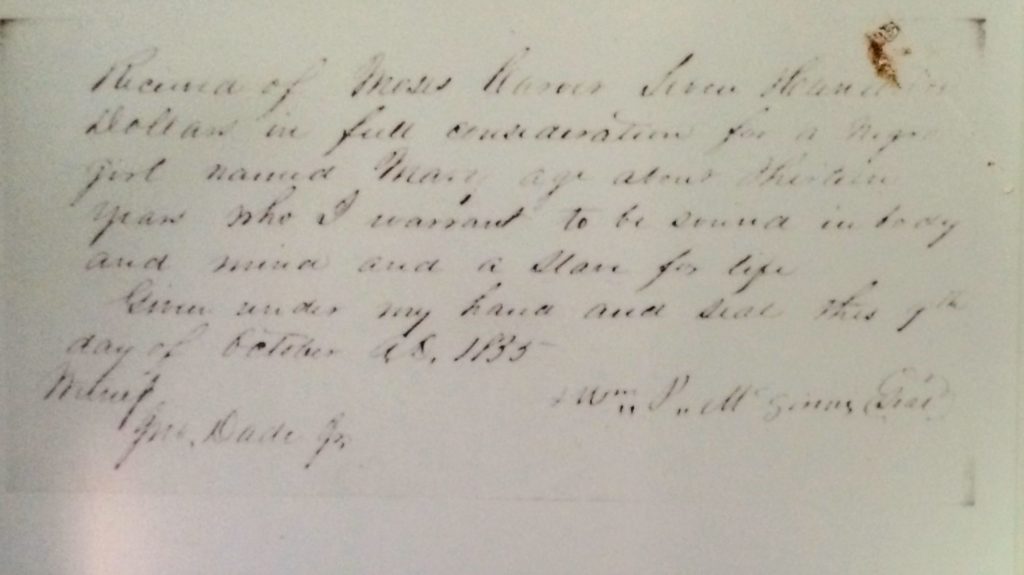 Received of Moses Carver Seven Hundred
Dollars in full consideration for a Negro
girl named Mary age about thirteen
years who I warrant to be sound in body
and mind and a slave for life
Given under my hand and seal this 9th
day of October A.D. 1855
Witness
Wm P. McGinnis (Seal)
Jno. Dade Jr